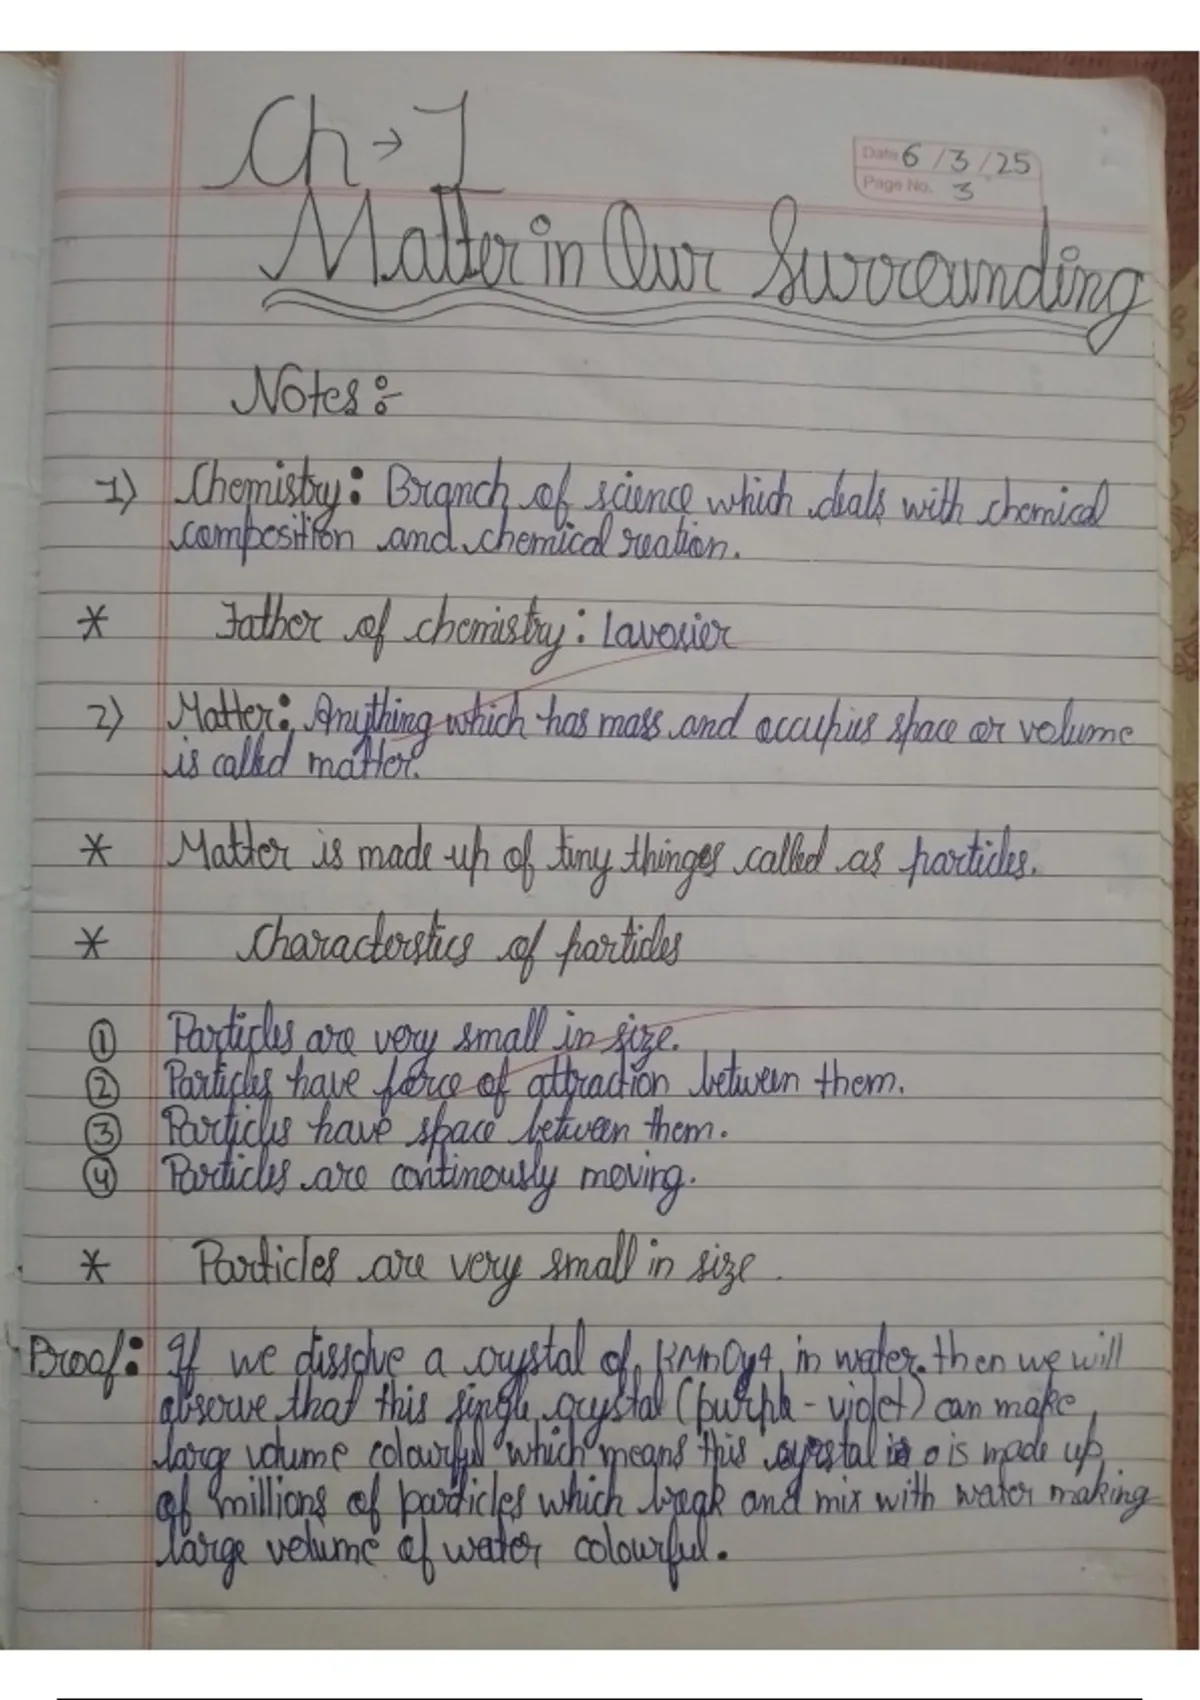 Ch → 1
Date 6/3/25
Page No. 3
Matter in Our Surrounding
Notes :-
1) Chemistry: Branch of science which deals with chemical
composition and chemical reation.
* Father of chemistry: Lavosier
2) Matter: Anything which has mass and occupies space or volume
is called matter.
* Matter is made up of tiny thinges called as particles.
* Characterstics of particles
① Particles are very small in size.
② Particles have force of attraction between them.
③ Particles have space between them.
④ Particles are continously moving.
* Particles are very small in size.
Proof: If we dissolve a crystal of KMnOy4 in water. then we will
observe that this single crystal (purple - violet) can make
large volume colourful which means this crystal is made up
of millions of particles which break and mix with water making
large volume of water colourful.